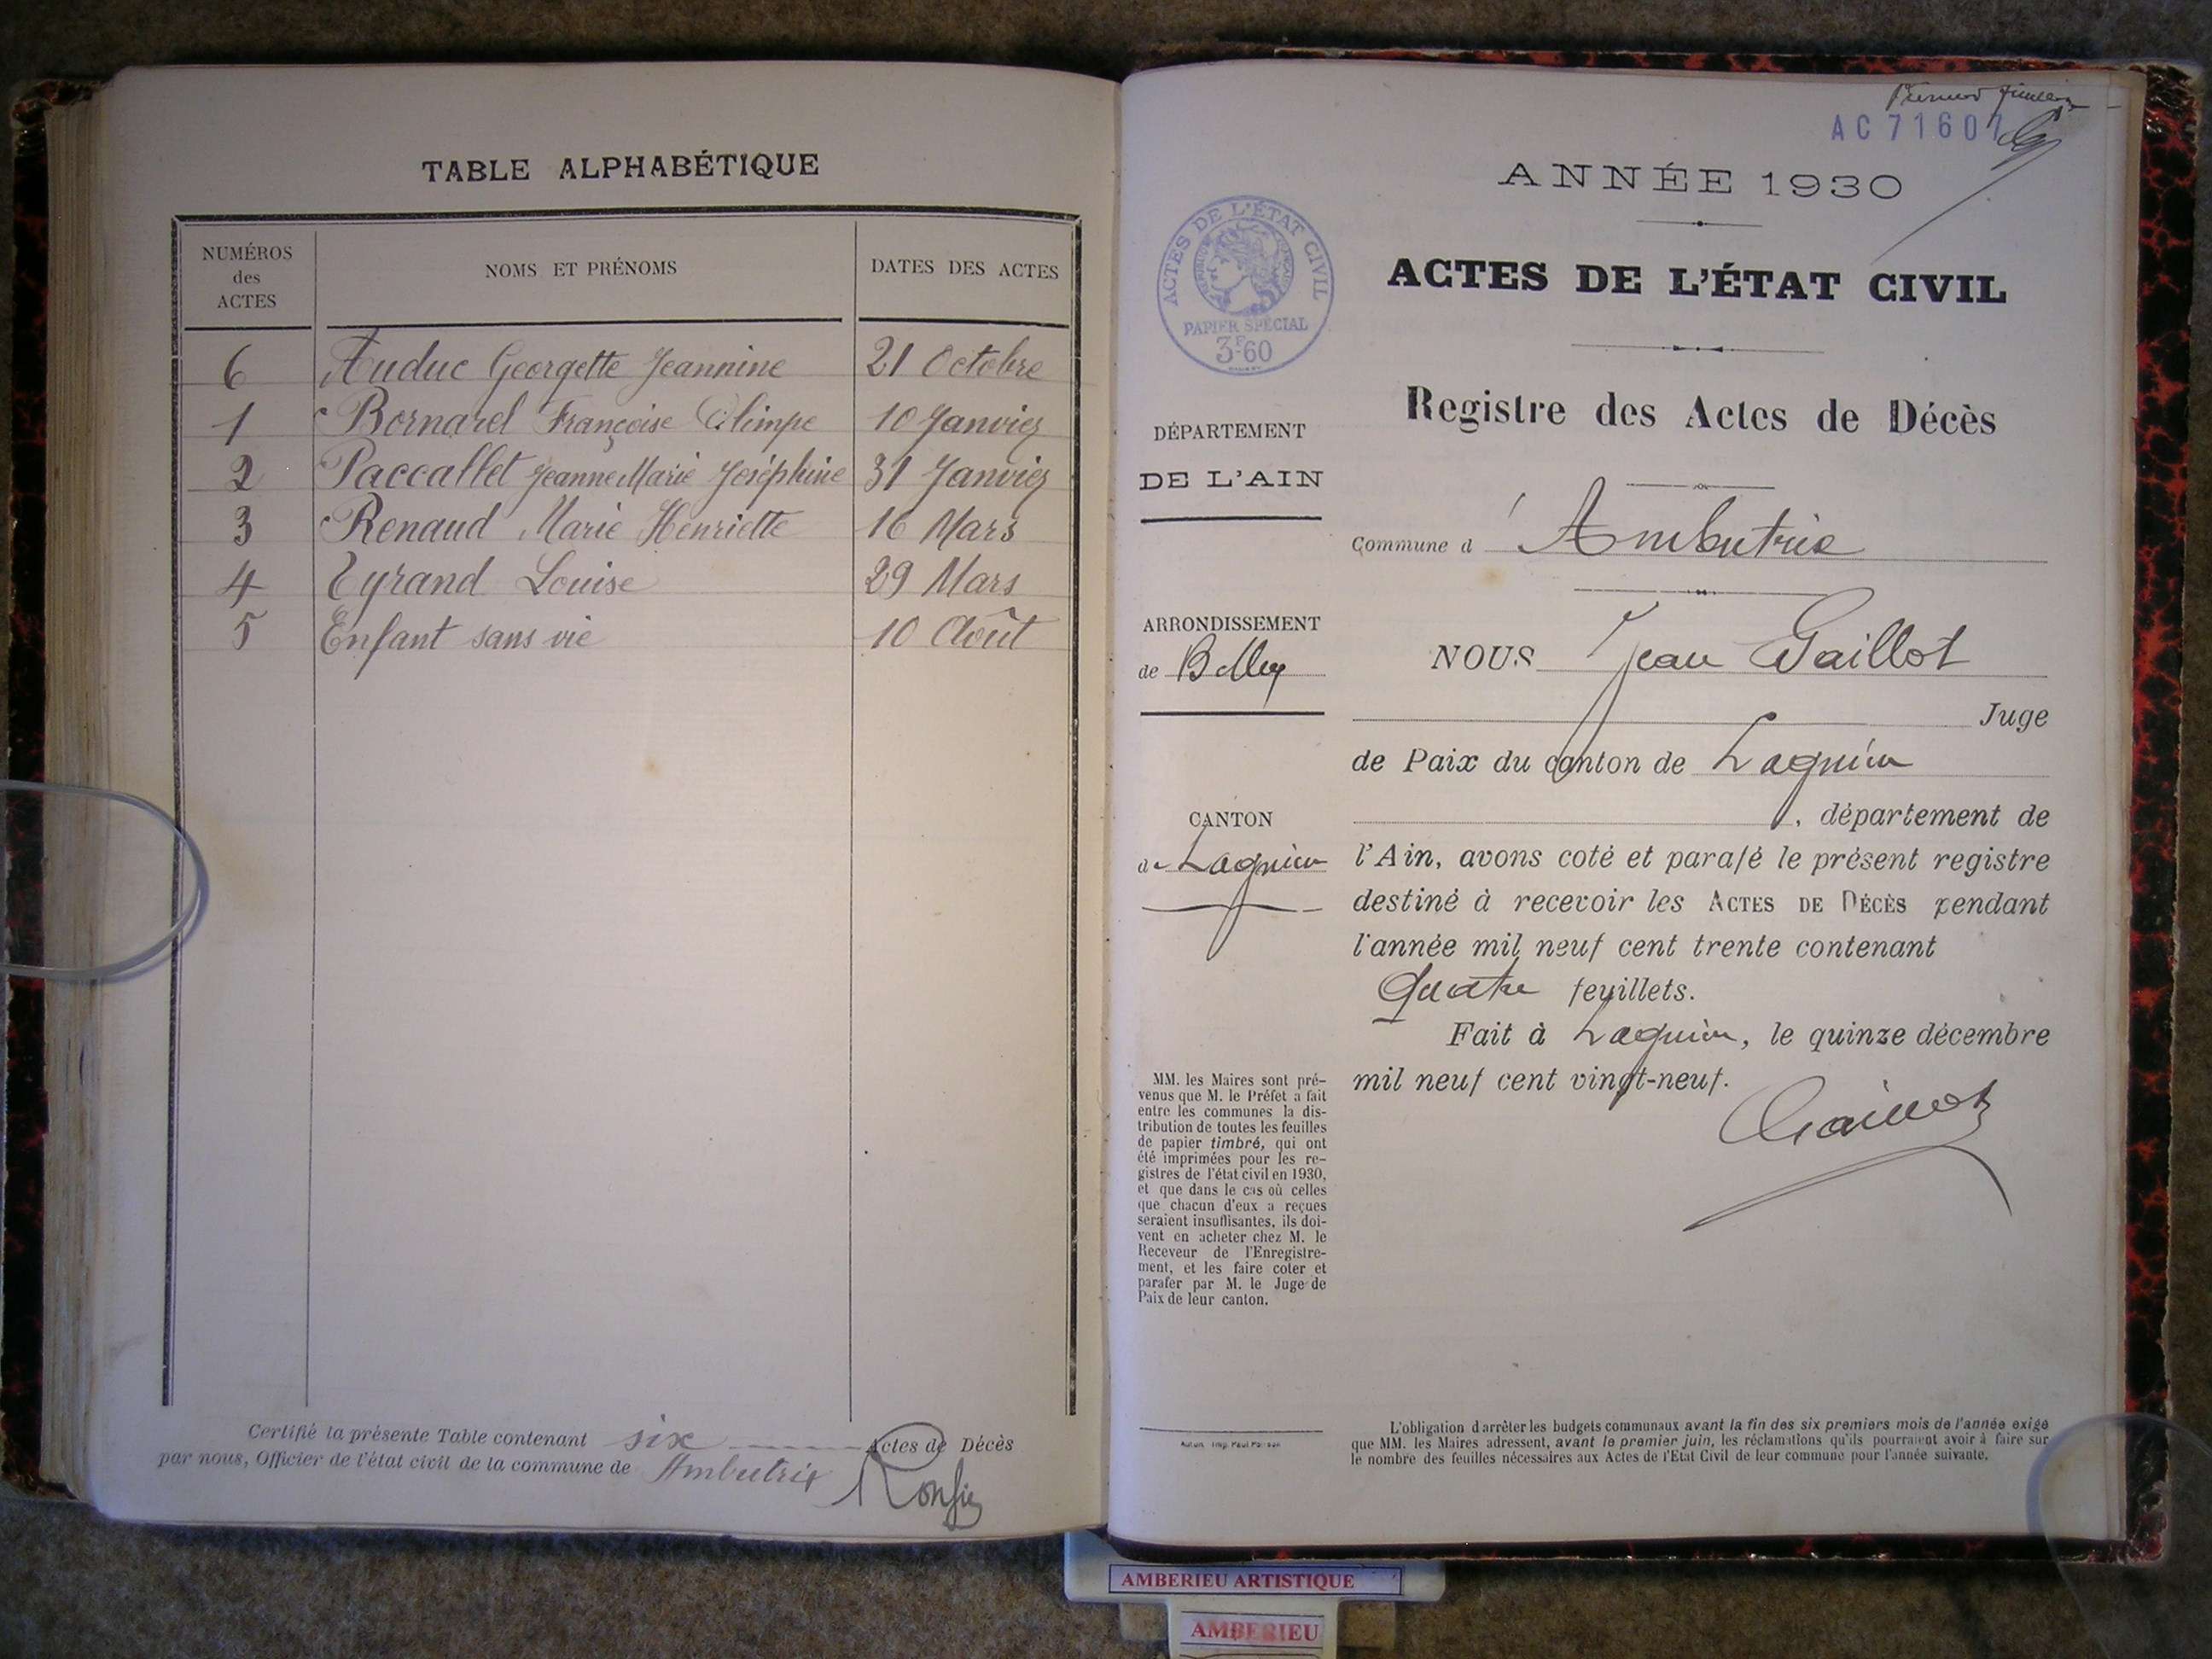 TABLE ALPHABÉTIQUE
NUMÉROS des ACTES NOMS ET PRÉNOMS DATES DES ACTES
6 Auduc Georgette Jeannine 21 Octobre
1 Bornarel Françoise Olimpe 10 Janvier
2 Paccallet Jeanne Marie Joséphine 31 Janvier
3 Renaud Marie Henriette 16 Mars
4 Eyrand Louise 29 Mars
5 Enfant sans vie 10 Août
Certifié la présente Table contenant six Actes de Décès
par nous, Officier de l'état civil de la commune de Ambutrix
AC 71607
ANNÉE 1930
ACTES DE L'ÉTAT CIVIL
PAPIER SPÉCIAL
3F60
ACTES DE L'ÉTAT CIVIL
Registre des Actes de Décès
DÉPARTEMENT
DE L'AIN
Commune d'Ambutrix
ARRONDISSEMENT
de Belley
NOUS Jean Gaillot
Juge
de Paix du canton de Lagnieu
, département de
CANTON
de Lagnieu
l'Ain, avons coté et parafé le présent registre
destiné à recevoir les ACTES DE DÉCÈS pendant
l'année mil neuf cent trente contenant
Quatre feuillets.
Fait à Lagnieu, le quinze décembre
mil neuf cent vingt-neuf.
Gaillot
MM. les Maires sont pré-
venus que M. le Préfet a fait
entre les communes la dis-
tribution de toutes les feuilles
de papier timbré, qui ont
été imprimées pour les re-
gistres de l'état civil en 1930,
et que dans le cas où celles
que chacun d'eux a reçues
seraient insuffisantes, ils doi-
vent en acheter chez M. le
Receveur de l'Enregistre-
ment, et les faire coter et
parafer par M. le Juge de
Paix de leur canton.
L'obligation d'arrêter les budgets communaux avant la fin des six premiers mois de l'année exige
que MM. les Maires adressent, avant le premier juin, les réclamations qu'ils pourraient avoir à faire sur
le nombre des feuilles nécessaires aux Actes de l'Etat Civil de leur commune pour l'année suivante.
AMBERIEU ARTISTIQUE
AMBERIEU